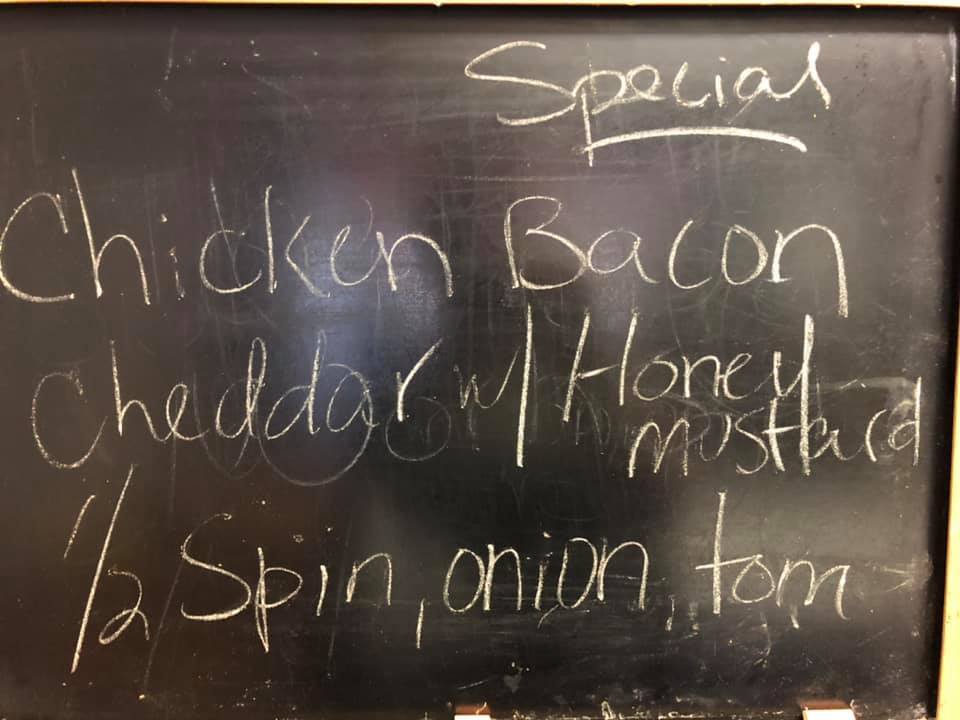 Special
Chicken Bacon
Cheddar w/ Honey
mustard
1/2 Spin, onion, tom